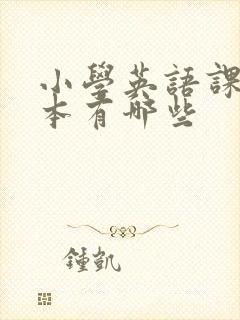 小學英語課
本有哪些
鍾凱